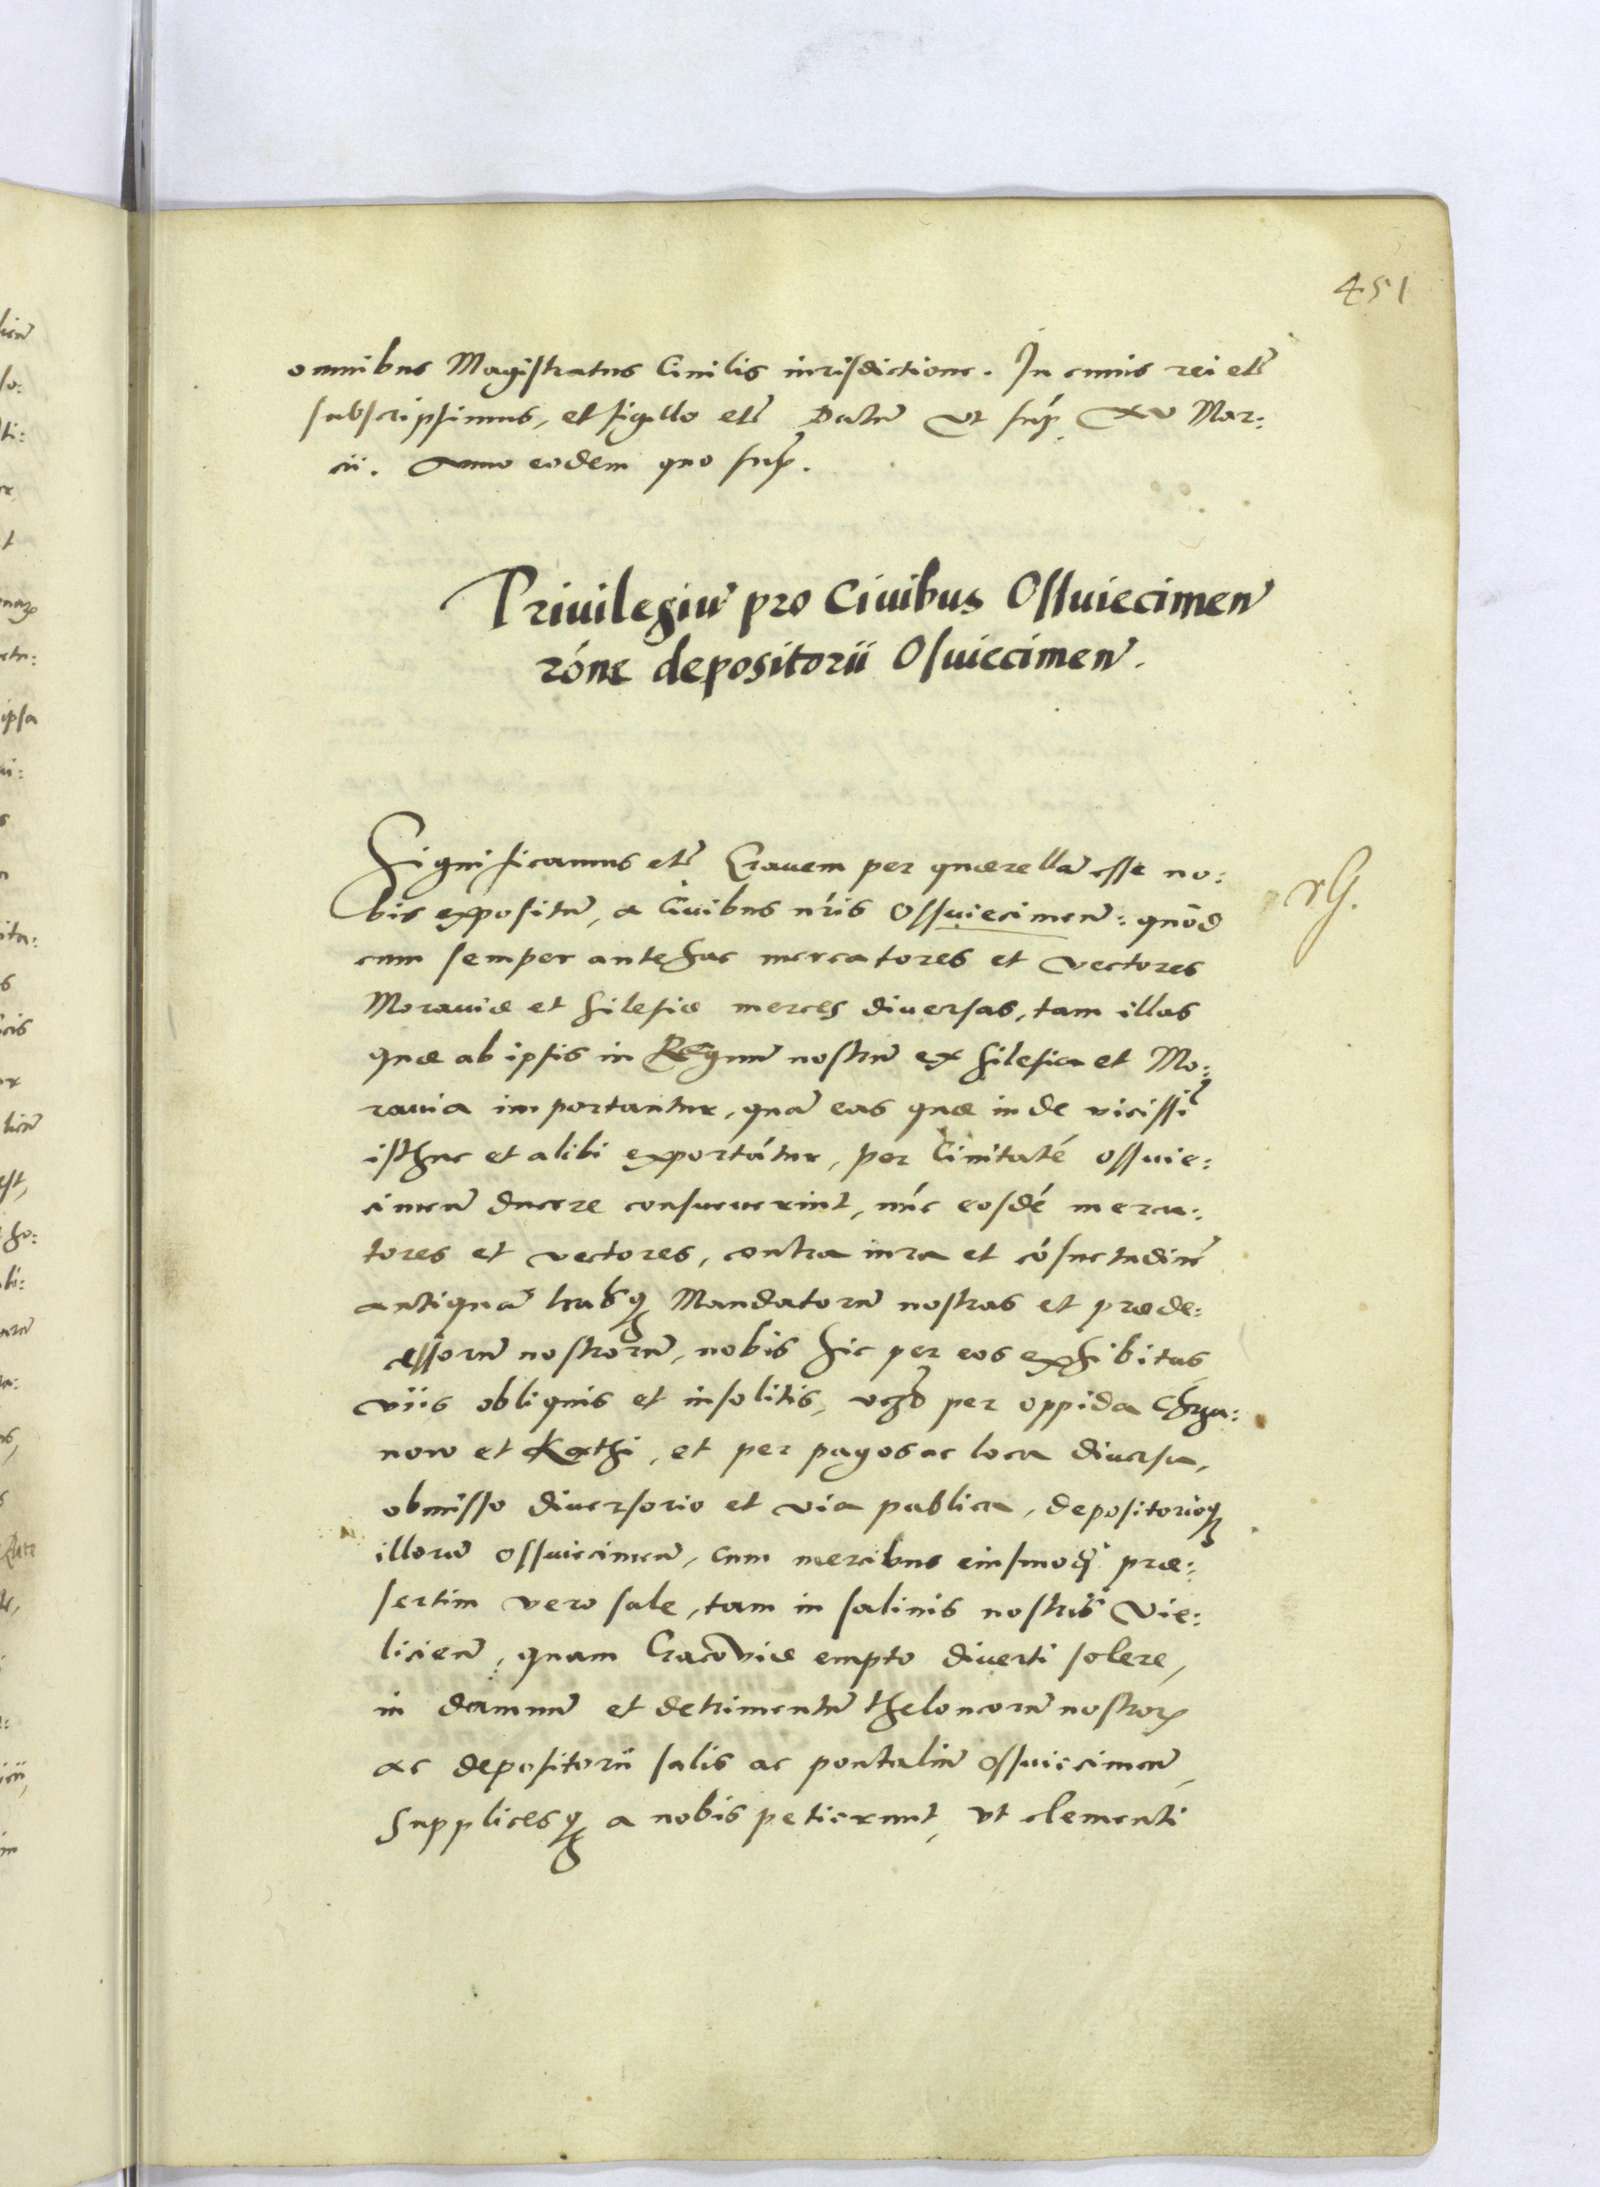 451
omnibus Magistratus Ciuilis iurisdictione. In cuius rei etc̃
subscripsimus, et sigillo etc̃ Datũ vt sup̃. xv Mar:
cii. Anno eodem quo sup̃.
Priuilegiũ pro Ciuibus Ossuiecimen̄
rõne depositorii Osuiecimen̄.
Significamus etc̃ Grauem per quærellã esse no:
bis expositũ, a Ciuibus nr̃is Ossuiecimen̄: quòd
cum semper antehac mercatores et vectores
Morauiæ et Silesiæ merces diuersas, tam illas
quæ ab ipsis in Regnũ nostrũ ex Silesia et Mo:
rauia importantur, quã eas quæ inde vicissĩ
isthuc et alibi exportãtur, per Ciuitatẽ Ossuie:
cimen̄ ducere consueuerint, nũc eosdẽ merca:
tores et vectores, contra iura et cõsuetudinẽ
antiquã Mandatorũ nostras et præde:
cessorũ nostrorũ, nobis hic per eos exhibitas
viis obliquis et insolitis, per oppida Chrza:
now et Kathi, et per pagos ac loca diuersa,
obmisso diuersorio et via publica, depositorioq́₃
illorũ Ossuiecimen̄, cum mercibus eiusmodi præ:
sertim vero sale, tam in salinis nostris Vie:
licien̄, quam Cracoviæ empto diuerti solere,
in damnũ et detrimentũ theloneorũ nostrorꝝ
ac depositorii salis ac pontaliũ Ossuiecimen̄,
supplicesq́₃ a nobis petierunt, vt clementi